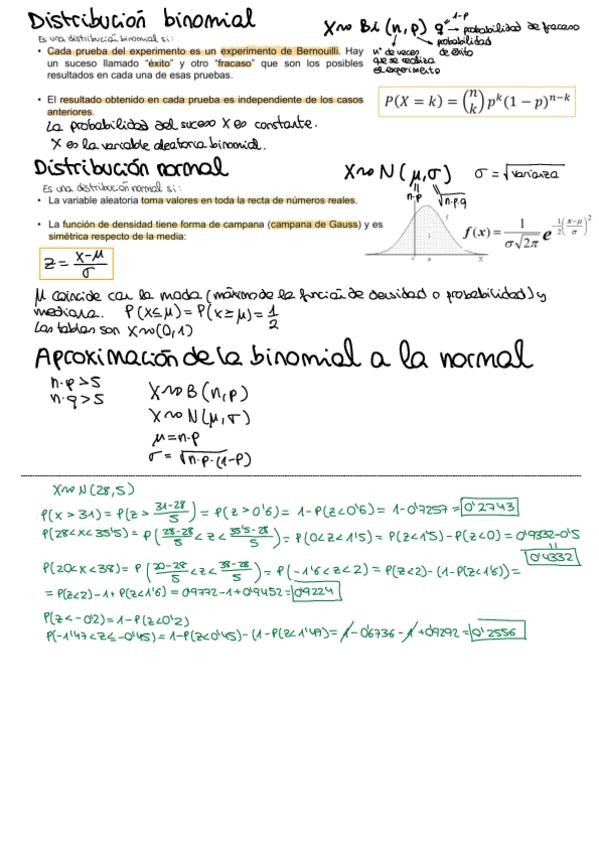 Distribución binomial
X~Bi(n,p) q^{1-p} → probabilidad de fracaso
probabilidad de éxito
nº de veces que se realiza el experimento
Es una distribución binomial si:
• Cada prueba del experimento es un experimento de Bernouilli. Hay
un suceso llamado "éxito" y otro "fracaso" que son los posibles
resultados en cada una de esas pruebas.
• El resultado obtenido en cada prueba es independiente de los casos
anteriores.
P(X = k) = (n k) p^k (1 − p)^{n−k}
La probabilidad del suceso X es constante.
X es la variable aleatoria binomial.
Distribución normal
X~N(μ,σ) σ=√varianza
n·p √n·p·q
Es una distribución normal si:
• La variable aleatoria toma valores en toda la recta de números reales.
• La función de densidad tiene forma de campana (campana de Gauss) y es
simétrica respecto de la media:
f(x) = 1/(σ√2π) e^{-1/2((x−μ)/σ)^2}
z = (X-μ)/σ
μ coincide con la moda (máximo de la función de densidad o probabilidad) y
mediana. P(X≤μ)=P(X≥μ)=1/2
Las tablas son X~(0,1)
Aproximación de la binomial a la normal
n·p>5
n·q>5
X~B(n,p)
X~N(μ,σ)
μ=n·p
σ=√n·p·(1-p)
X~N(28,5)
P(X>31)=P(z>(31-28)/5)=P(z>0'6)=1-P(z<0'6)=1-0'7257=0'2743
P(28<X<35'5)=P((28-28)/5<z<(35'5-28)/5)=P(0<z<1'5)=P(z<1'5)-P(z<0)=0'9332-0'5
=
0'4332
P(20<X<38)=P((20-28)/5<z<(38-28)/5)=P(-1'6<z<2)=P(z<2)-(1-P(z<1'6))=
=P(z<2)-1+P(z<1'6)=0'9772-1+0'9452=0'9224
P(z<-0'2)=1-P(z<0'2)
P(-1'47<z≤-0'45)=1-P(z<0'45)-(1-P(z<1'47)=1-0'6736-1+0'9292=0'2556